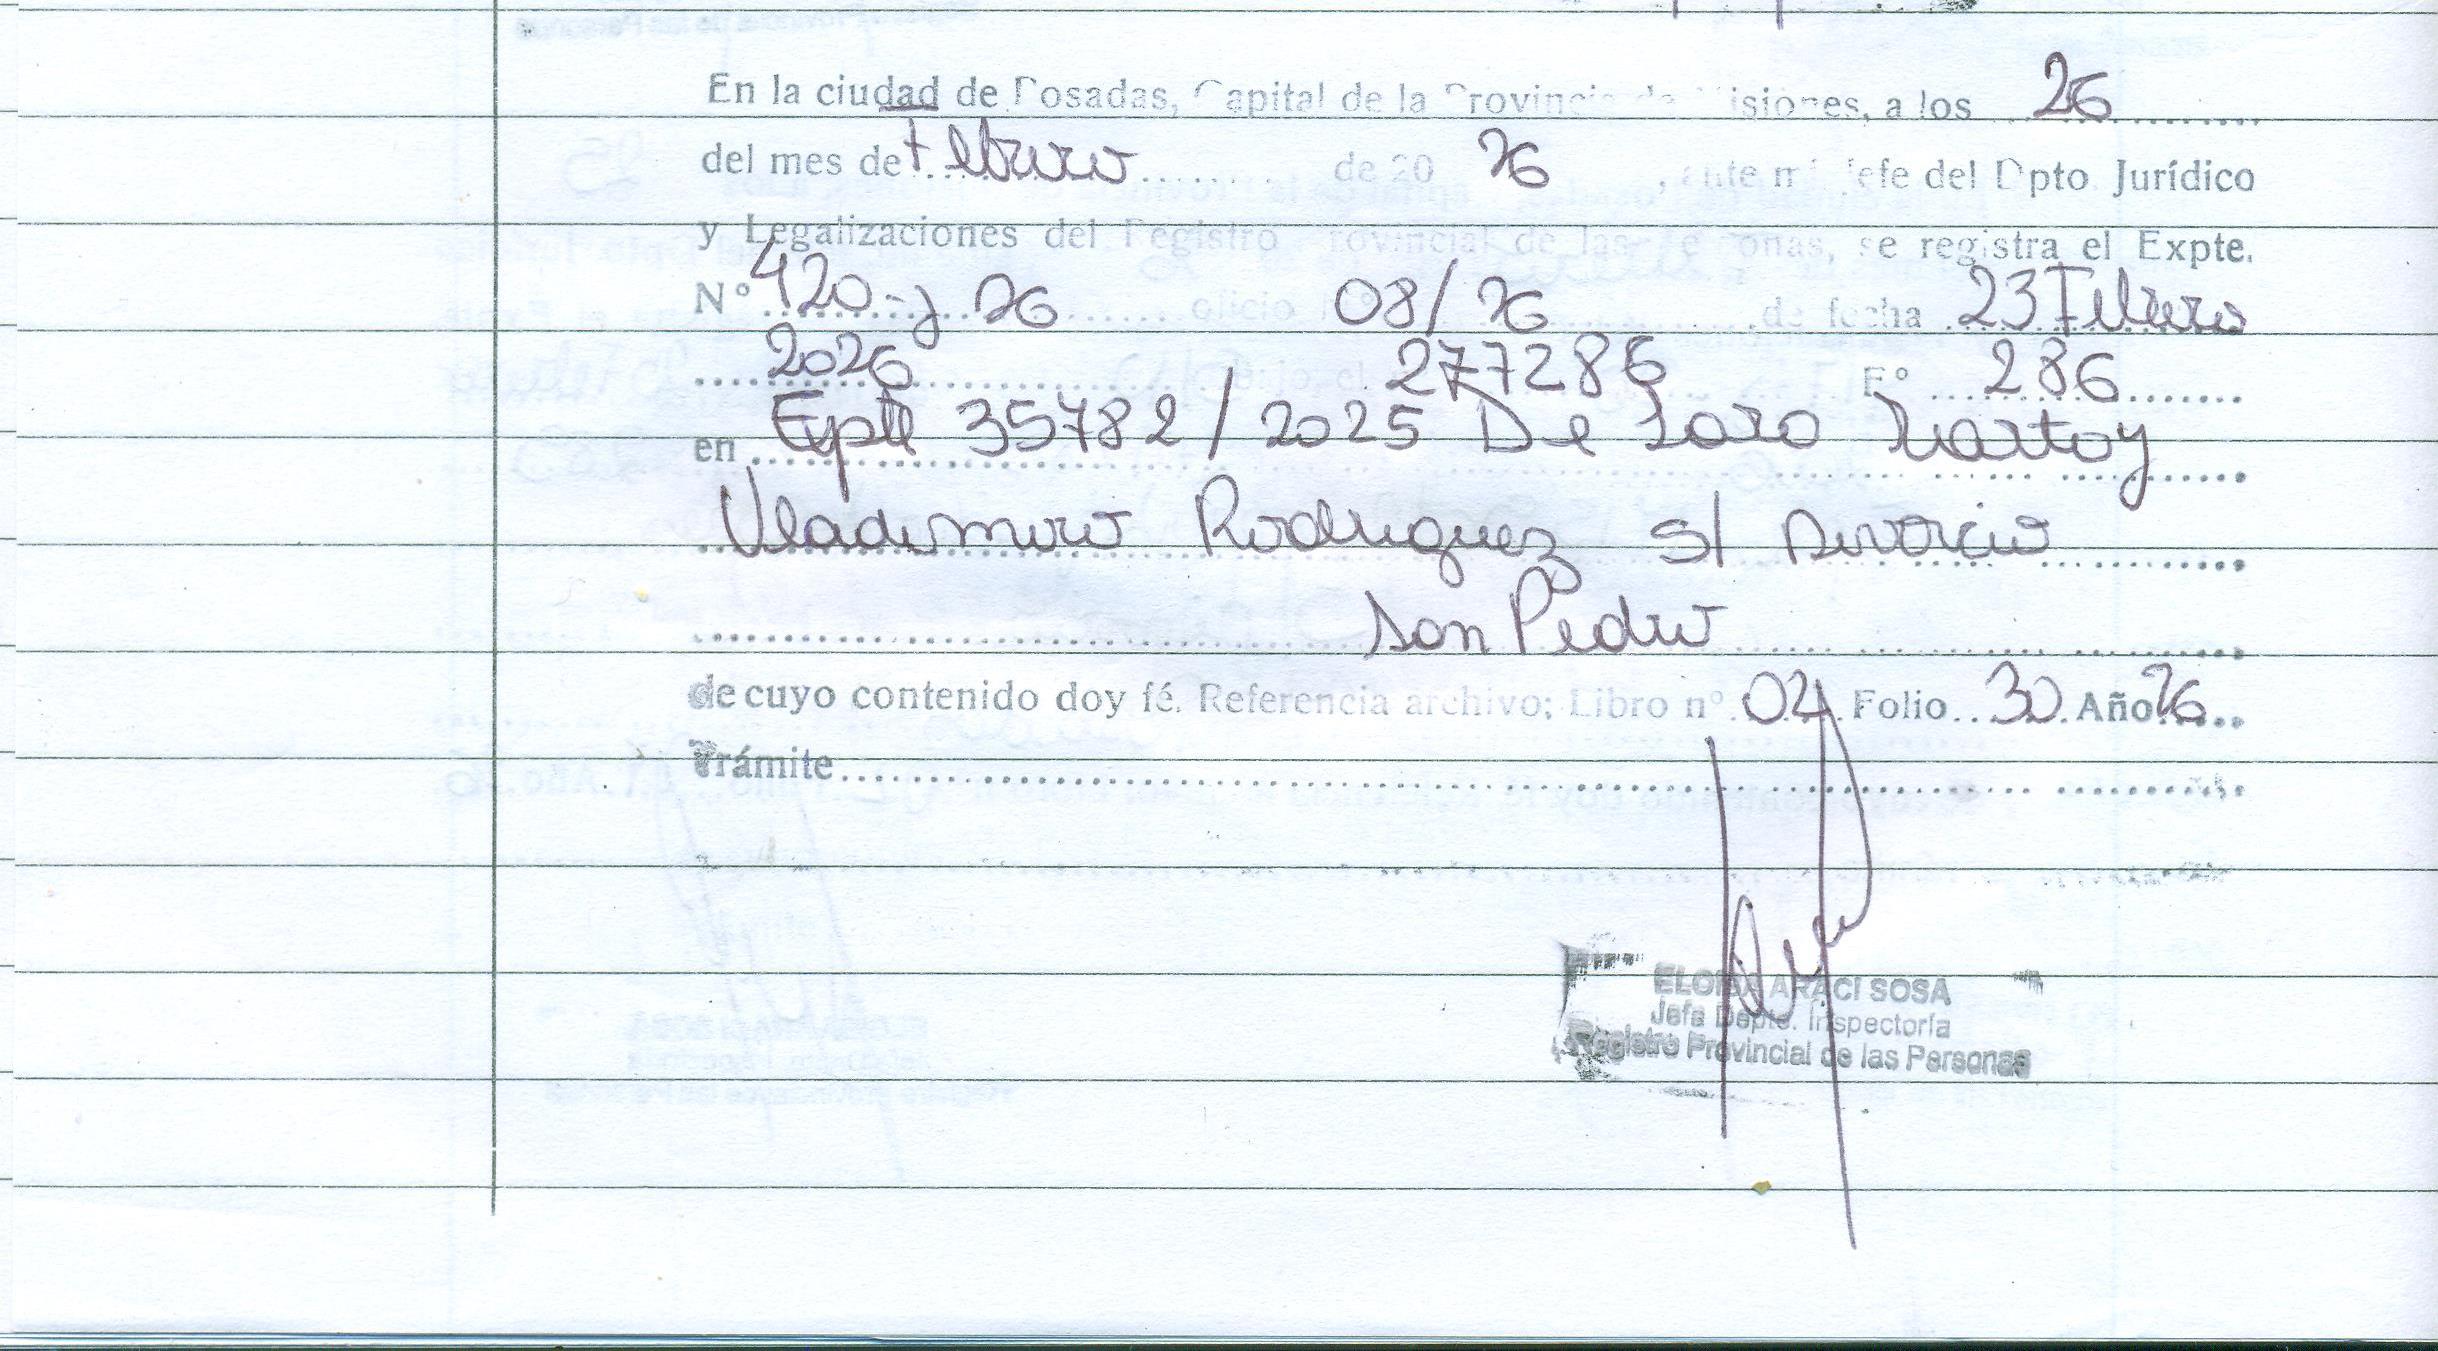 En la ciudad de Posadas, Capital de la Provincia de Misiones, a los 26
del mes de febrero de 20 26, ante mí Jefe del Dpto. Jurídico
y Legalizaciones del Registro Provincial de las Personas, se registra el Expte.
N° 420-J 26 oficio N° 08/26 de fecha 23 Febrero
2026 277286 F° 286
en Expte 35782/2025 De Lara Marta y
Vladimiro Rodriguez s/ Divorcio
San Pedro
de cuyo contenido doy fé. Referencia archivo; Libro n° 02 Folio 30 Año 26
Trámite
ELOISA ARACI SOSA
Jefa Depto. Inspectoría
Registro Provincial de las Personas